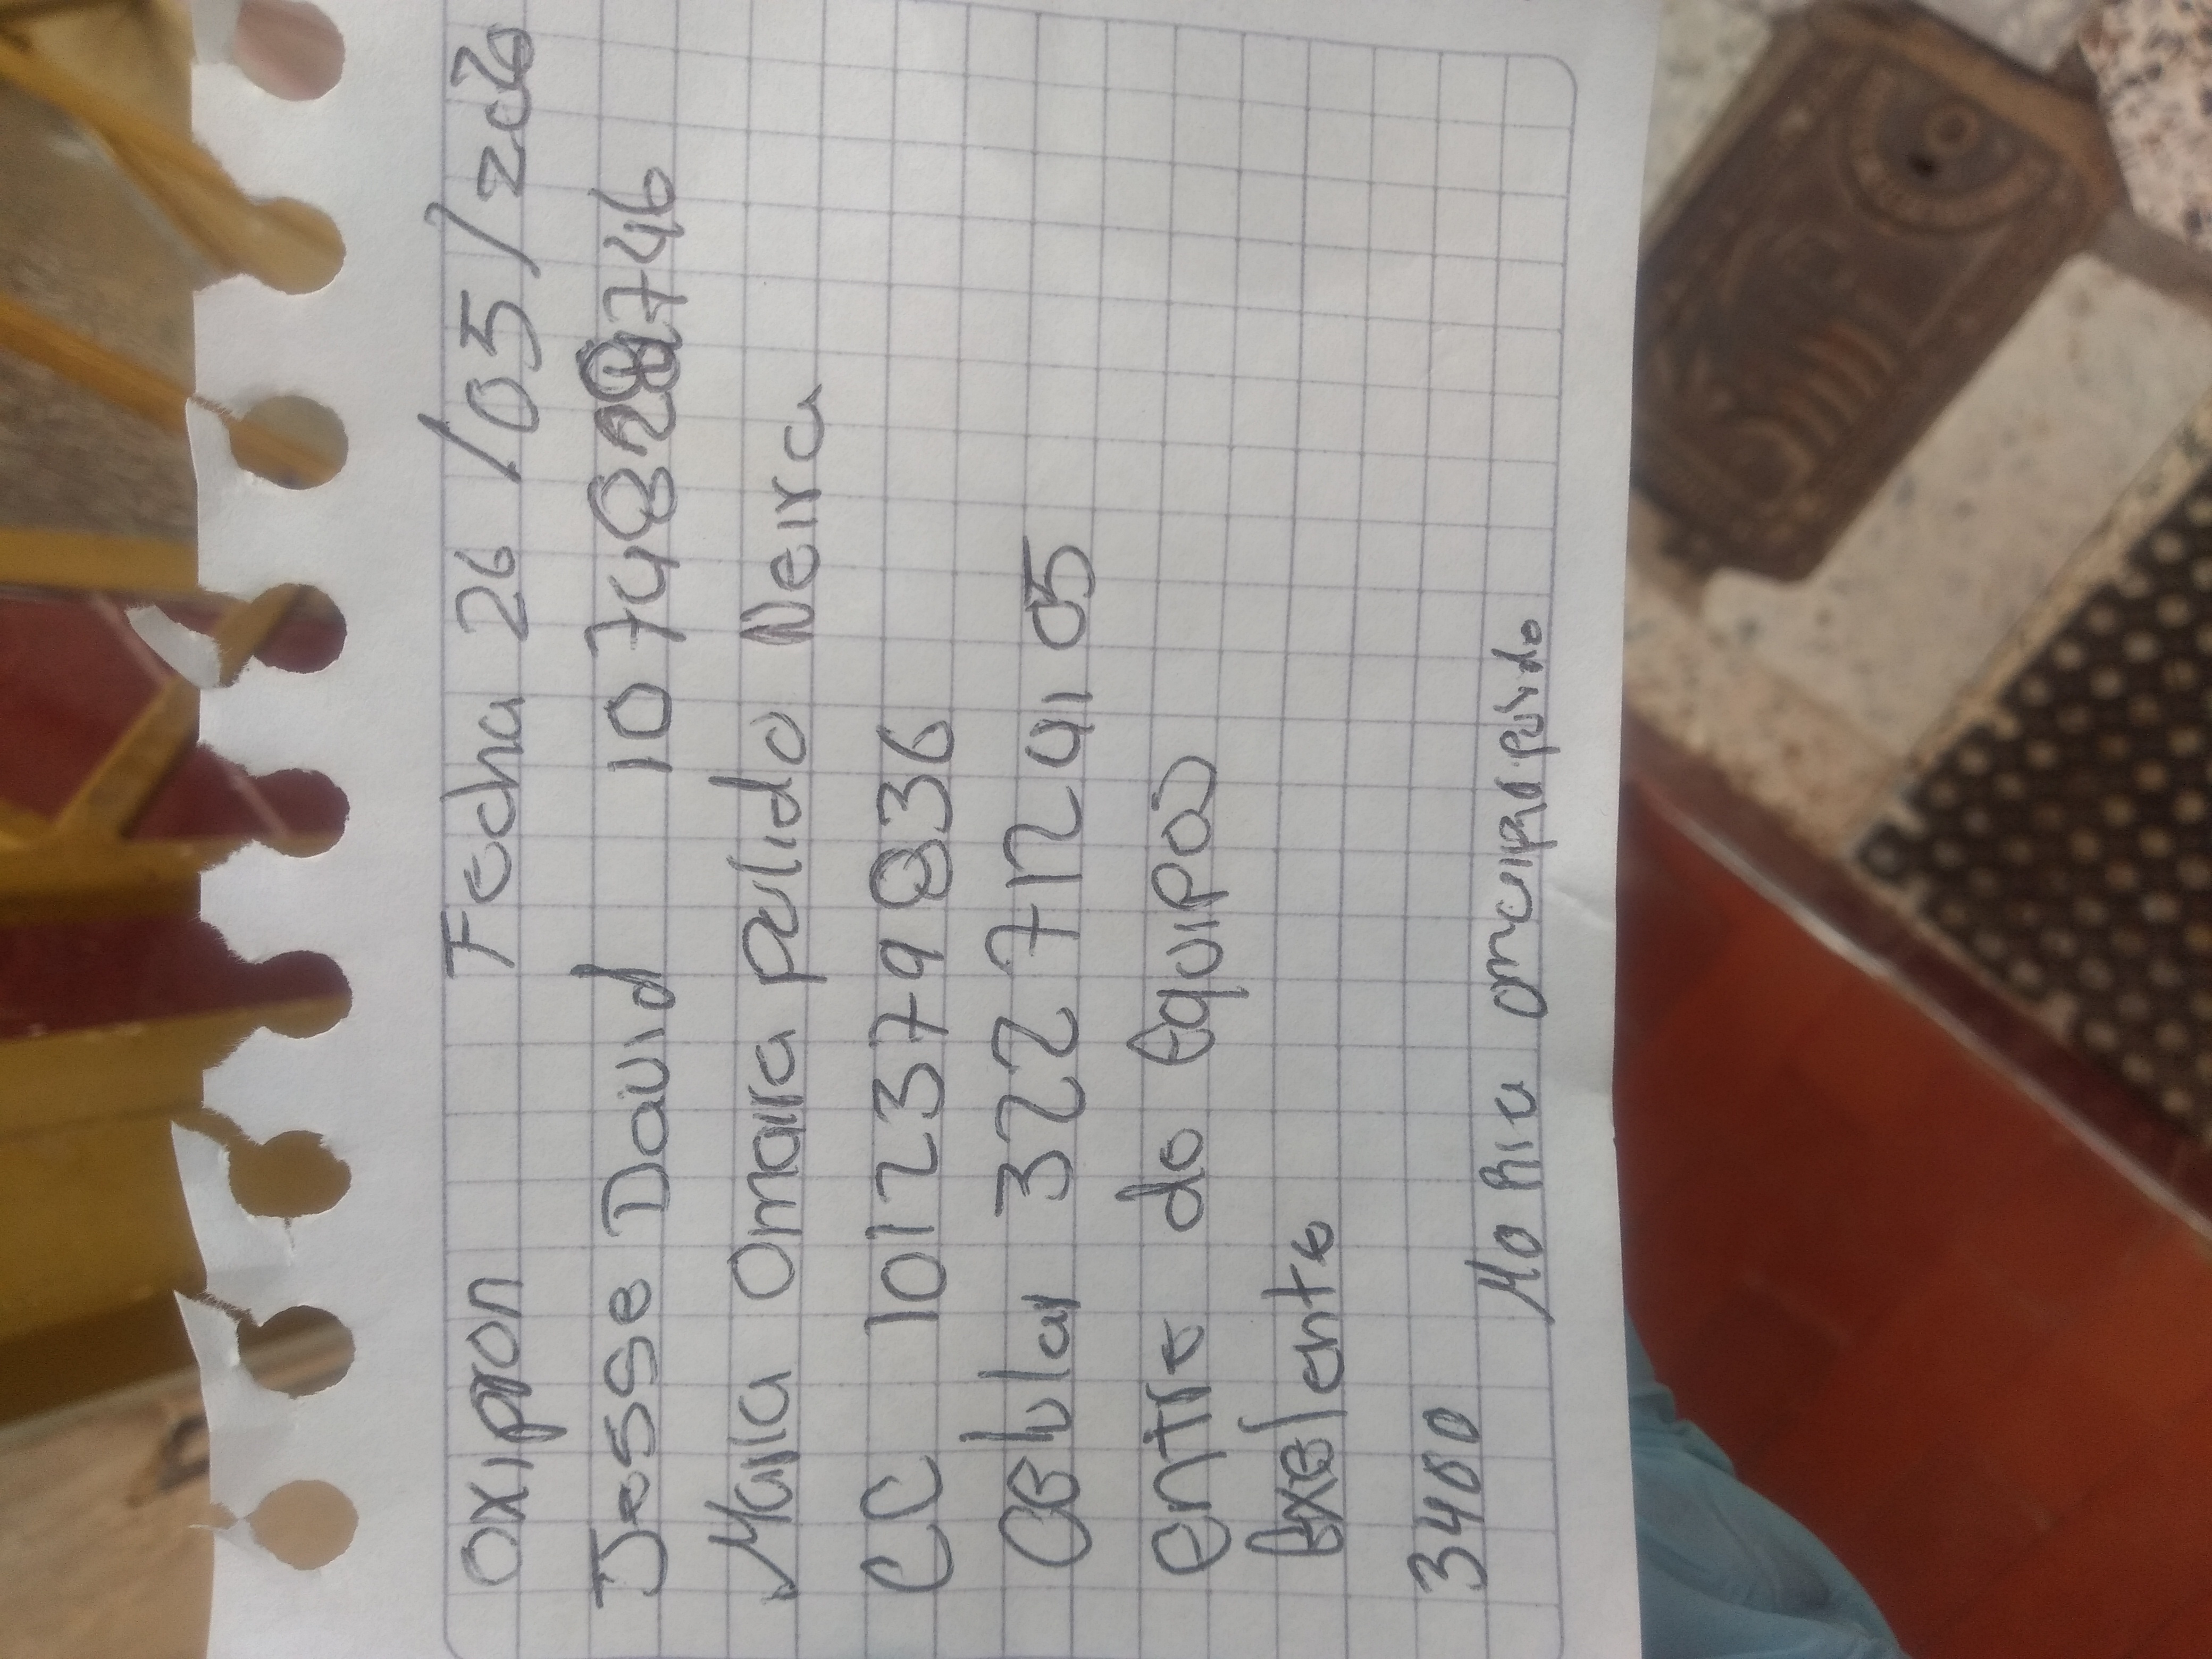 oxipron Fecha 26/05/2026
Jesse David 10748288746
Maria Omaira pulido Neira
CC 1012379836
Celular 3227124105
entre de Equipos
Exelente
3400
Maria omaira pulido